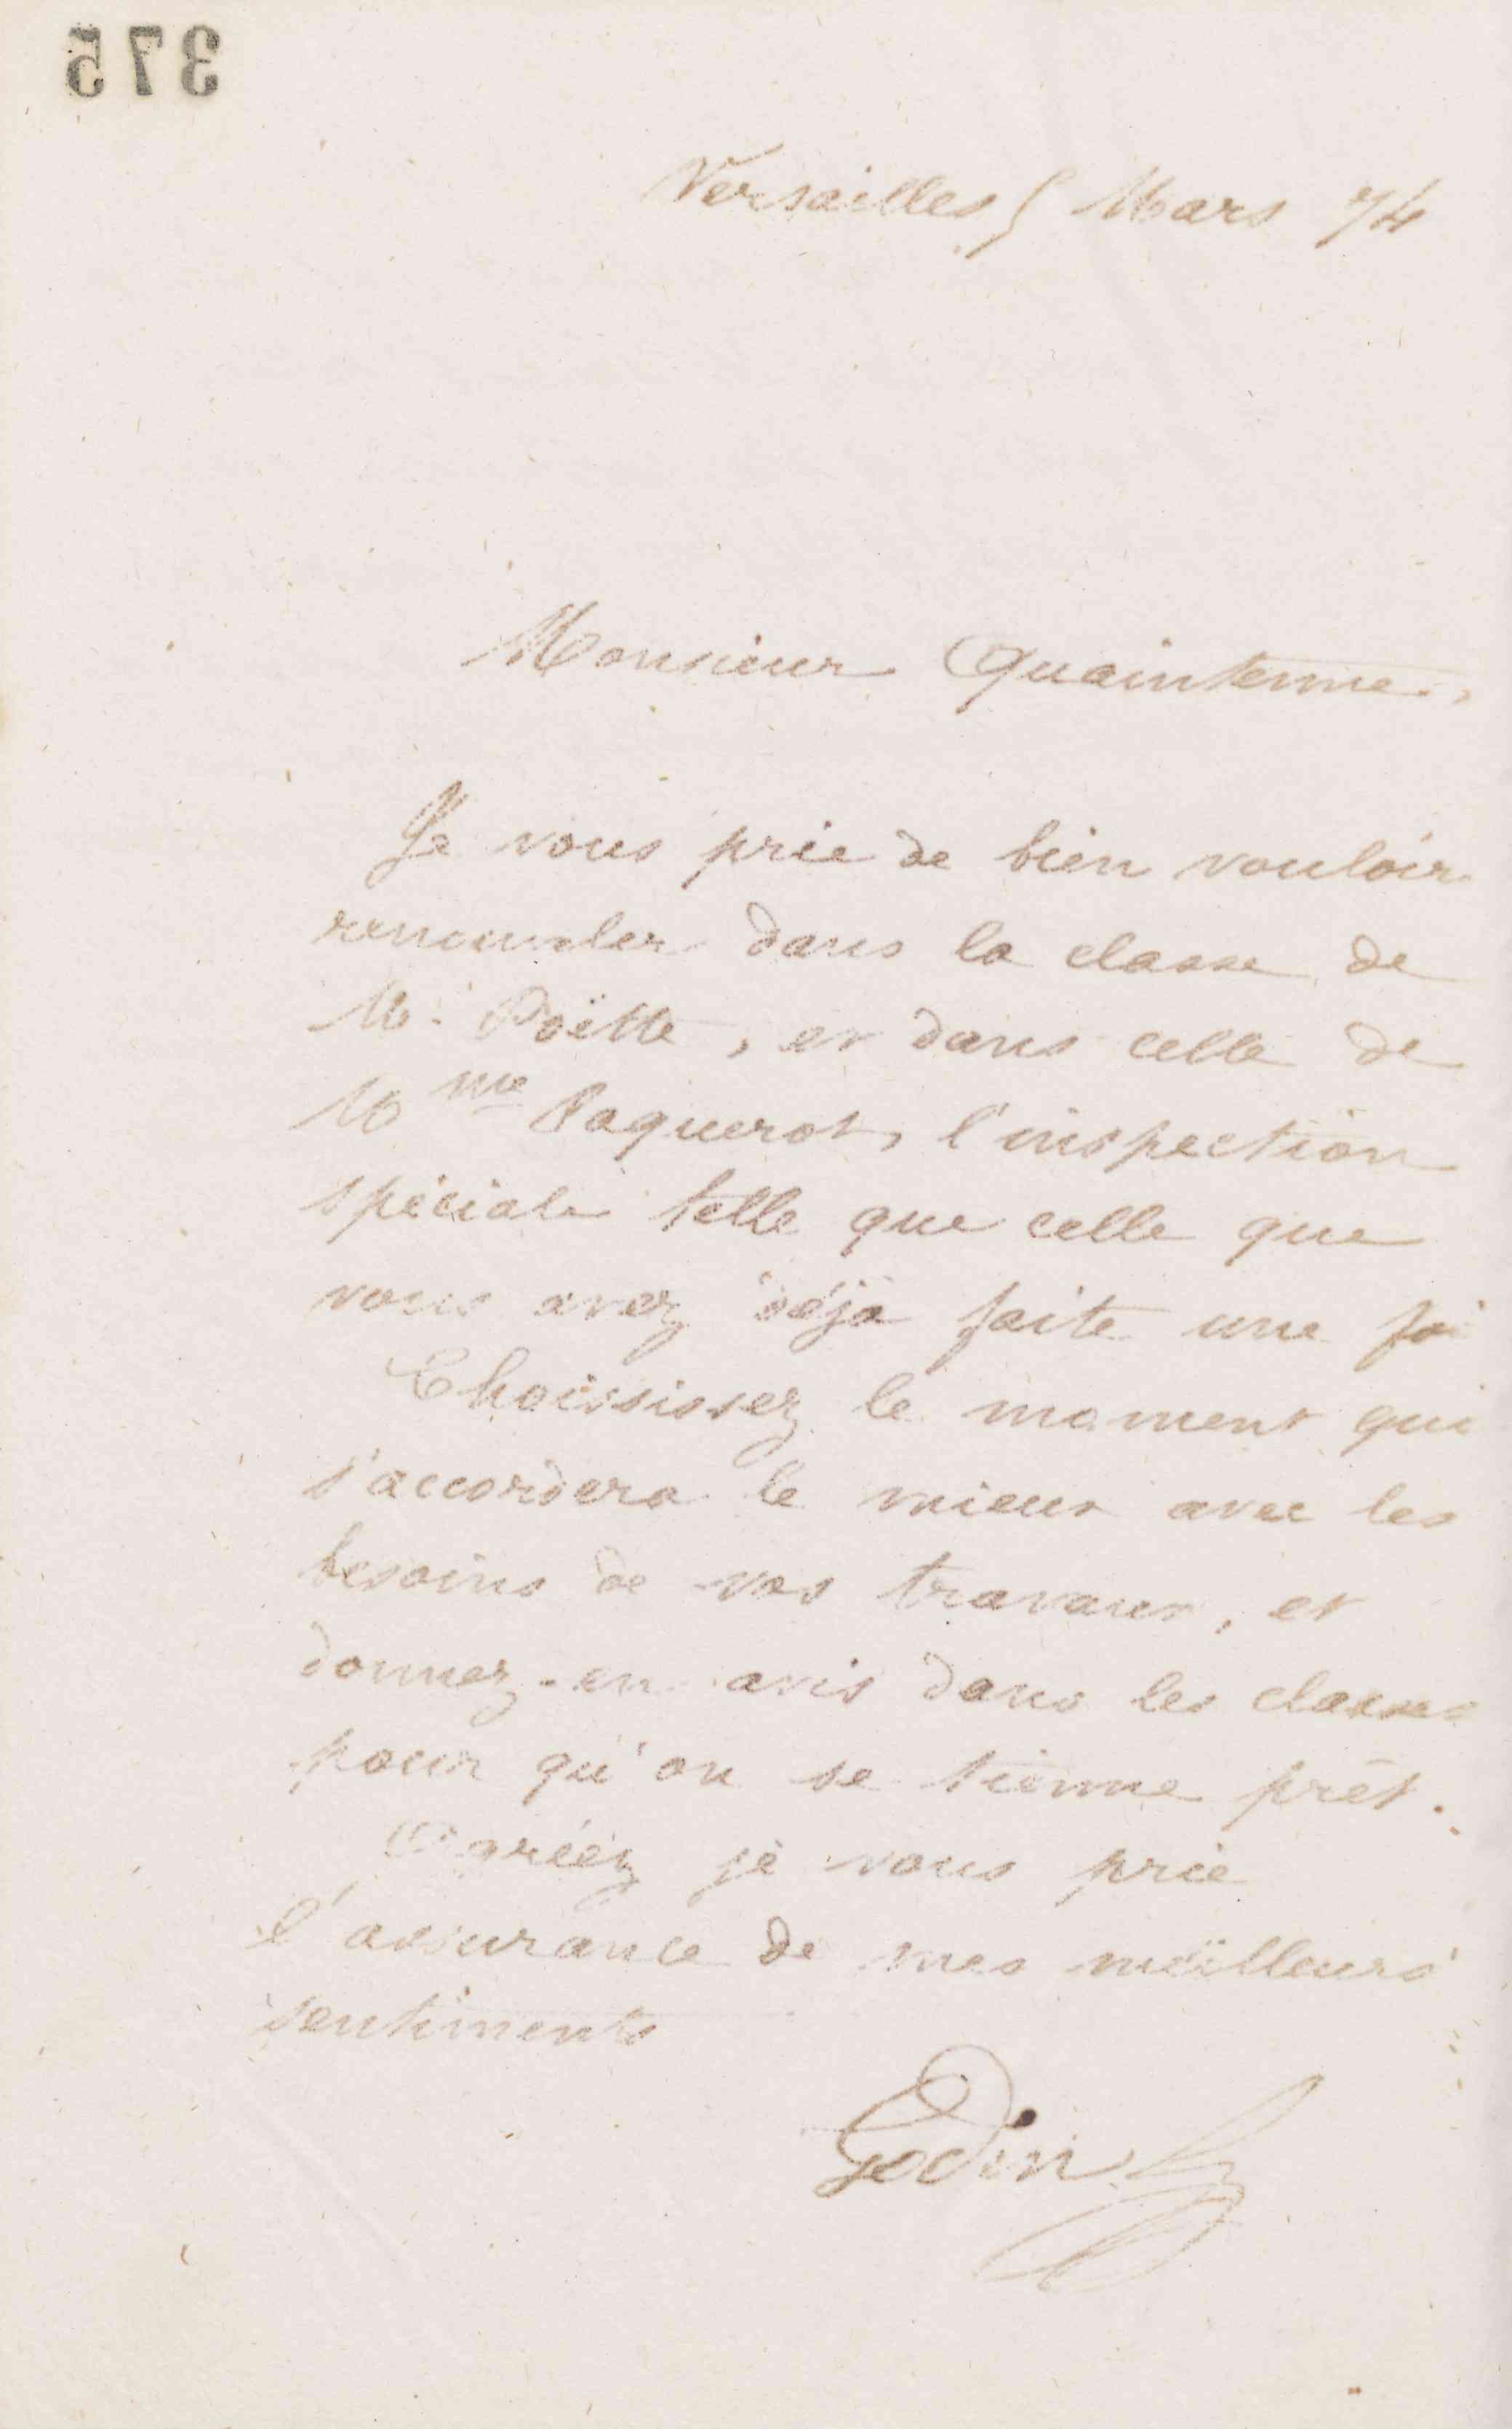 375
Versailles 5 Mars 74
Monsieur Quaintenne,
Je vous prie de bien vouloir
renouveler dans la classe de
Mr Poëtte, et dans celle de
Mme Paquerot, l'inspection
spéciale telle que celle que
vous avez déjà faite une foi
Choississez le moment qui
s'accordera le mieux avec les
besoins de vos travaux, et
donnez-en avis dans les classes
pour qu'on se tienne prêt.
Agréez je vous prie
l'assurance de mes meilleurs
sentiments
Godin